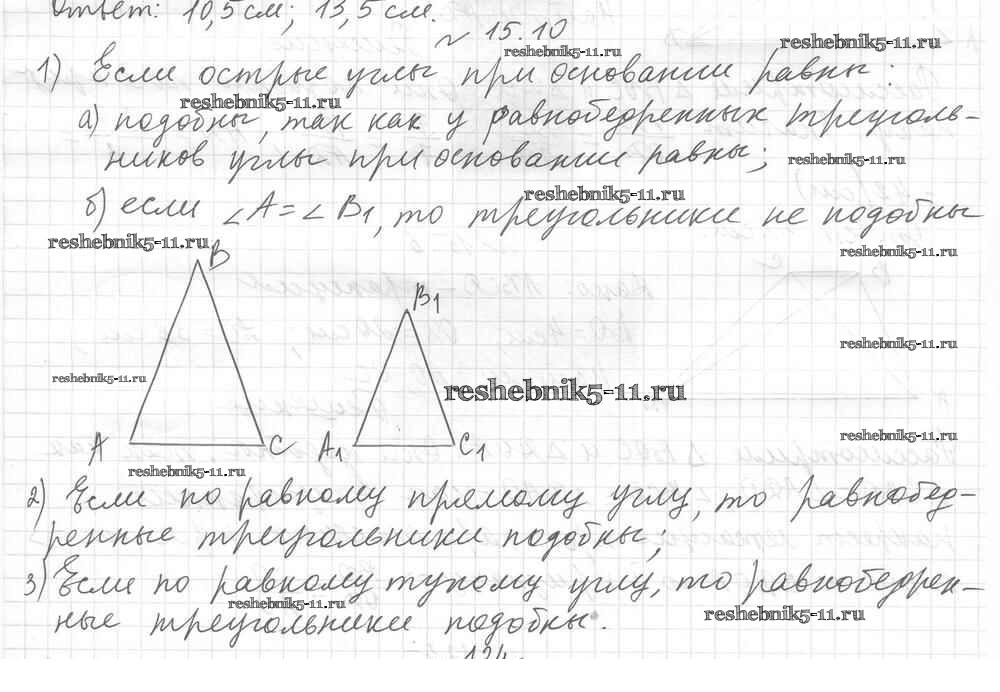 Ответ: 10,5 см; 13,5 см.
~ 15.10
reshebnik5-11.ru
reshebnik5-11.ru
1) Если острые углы при основании равны:
reshebnik5-11.ru
а) подобны, так как у равнобедренных треуголь-
ников углы при основании равны;
reshebnik5-11.ru
reshebnik5-11.ru
б) если ∠A = ∠B1, то треугольники не подобны
reshebnik5-11.ru
reshebnik5-11.ru
B
B1
reshebnik5-11.ru
reshebnik5-11.ru
reshebnik5-11.ru
A C A1 C1
reshebnik5-11.ru
reshebnik5-11.ru
2) Если по равному прямому углу, то равнобед-
ренные треугольники подобны;
3) Если по равному тупому углу, то равнобедрен-
reshebnik5-11.ru
reshebnik5-11.ru
ные треугольники подобны.
124